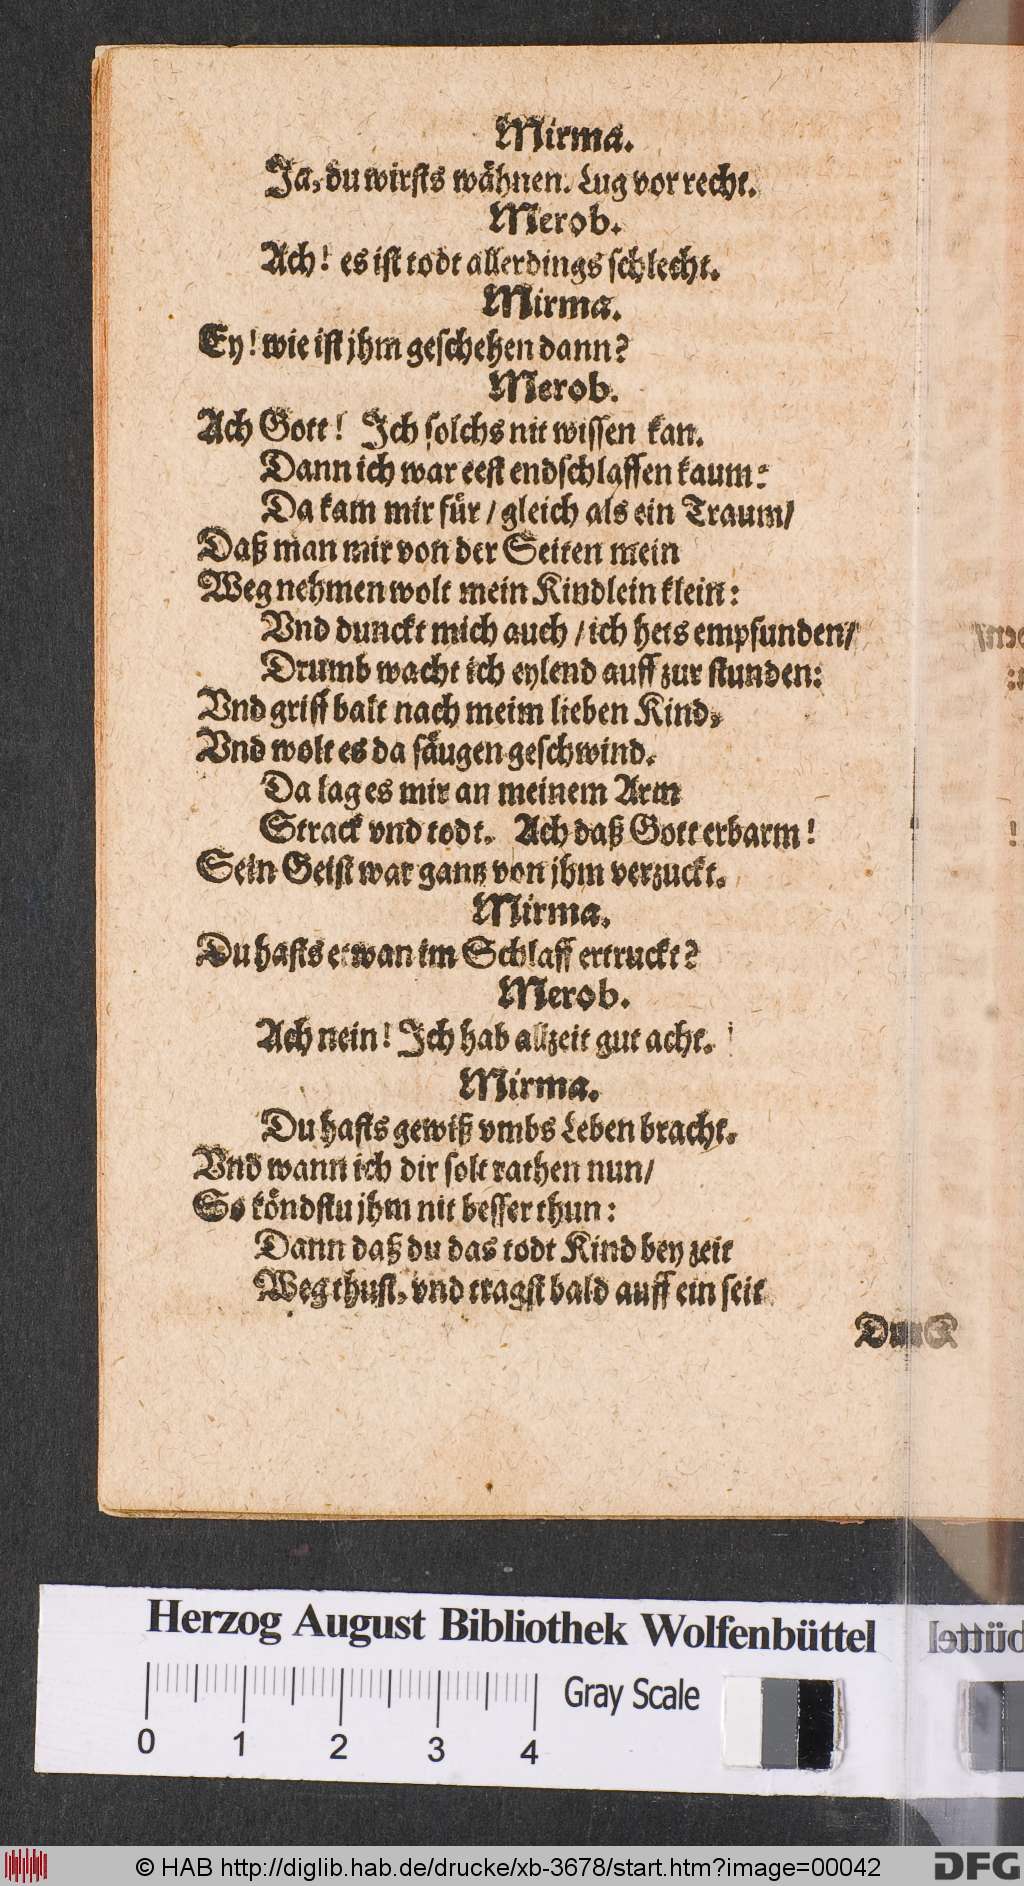 Mirma.
Ja, du wirsts wähnen. Lug vor recht.
Merob.
Ach! es ist todt allerdings schlecht.
Mirma.
Ey! wie ist jhm geschehen dann?
Merob.
Ach Gott! Ich solchs nit wissen kan.
Dann ich war eest endschlaffen kaum:
Da kam mir für / gleich als ein Traum/
Daß man mir von der Seiten mein
Weg nehmen wolt mein Kindlein klein:
Vnd dunckt mich auch / ich hets empfunden/
Drumb wacht ich eylend auff zur stunden:
Vnd griff balt nach meim lieben Kind,
Vnd wolt es da säugen geschwind.
Da lag es mir an meinem Arm
Strack vnd todt. Ach daß Gott erbarm!
Sein Geist war gantz von jhm verzuckt.
Mirma.
Du hasts etwan im Schlaff ertruckt?
Merob.
Ach nein! Ich hab allzeit gut acht.
Mirma.
Du hasts gewiß vmbs Leben bracht.
Vnd wann ich dir solt rathen nun/
So köndstu jhm nit besser thun:
Dann daß du das todt Kind bey zeit
Weg thust, vnd tragst bald auff ein seit
Herzog August Bibliothek Wolfenbüttel
0 1 2 3 4 Gray Scale
© HAB http://diglib.hab.de/drucke/xb-3678/start.htm?image=00042 DFG